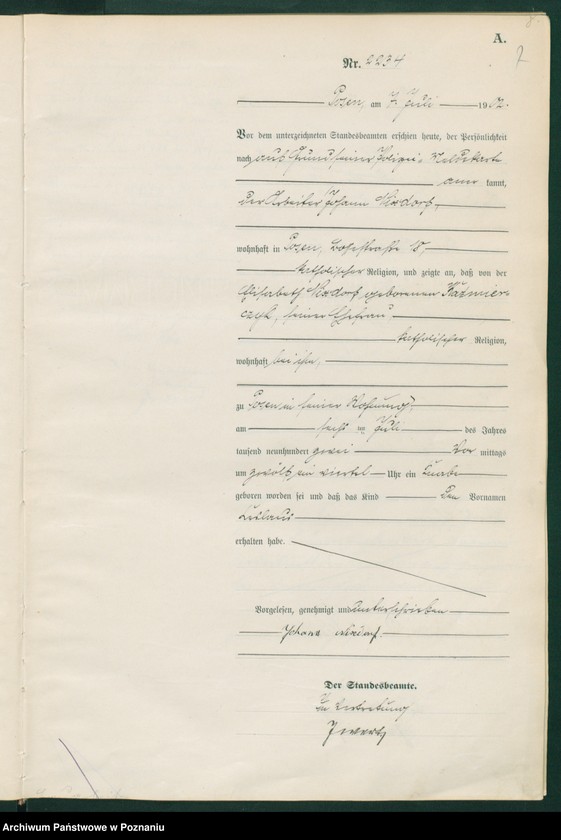 A.
2
Nr. 2234
Posen, am 7. Juli 1902.
Vor dem unterzeichneten Standesbeamten erschien heute, der Persönlichkeit
nach auf Grund seiner Polizei-Meldekarte
aner kannt,
der Arbeiter Johann Nixdorf,
wohnhaft in Posen,
katholischer Religion, und zeigte an, daß von der
Elisabeth Nixdorf, geborenen Kazmier-
czak, seiner Ehefrau
katholischer Religion,
wohnhaft bei ihm,
zu Posen in seiner Wohnung,
am sechs ten Juli des Jahres
tausend neunhundert zwei Vor mittags
um zwölf ein viertel Uhr ein Knabe
geboren worden sei und daß das Kind den Vornamen
erhalten habe.
Vorgelesen, genehmigt und unterschrieben
Johann Nixdorf.
Der Standesbeamte.
In Vertretung
Archiwum Państwowe w Poznaniu